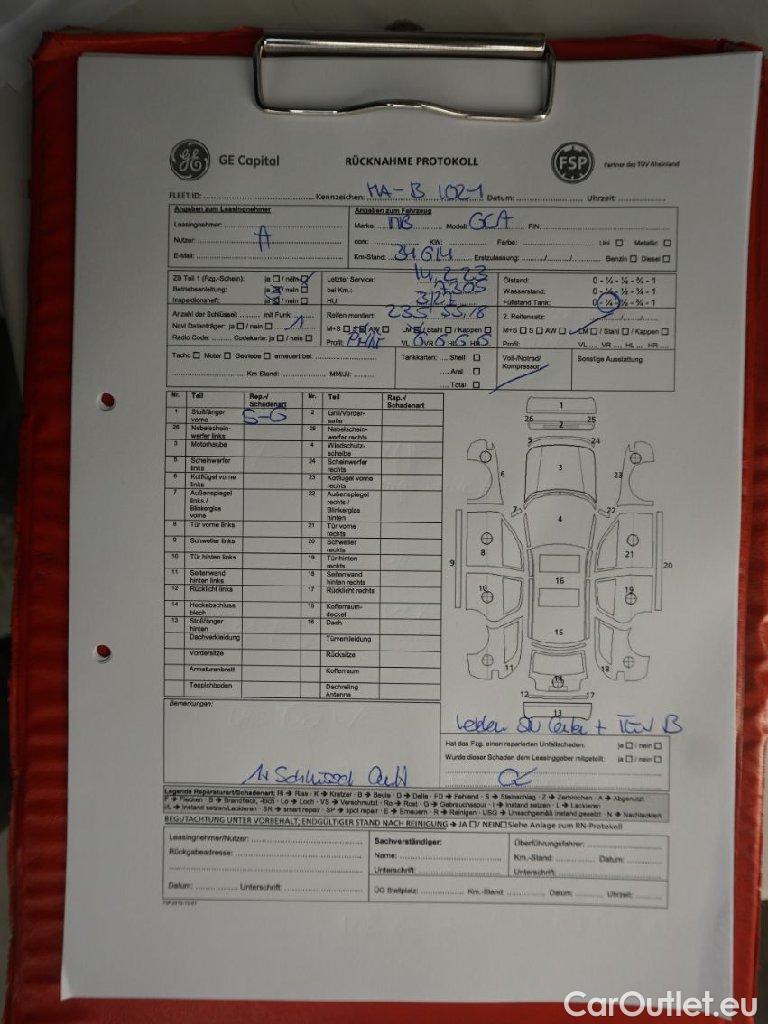 GE Capital RÜCKNAHME PROTOKOLL FSP Partner des TÜV Rheinland
FLEET ID: Kennzeichen: MA-B 1021 Datum: Uhrzeit:
Angaben zum Leasingnehmer
Leasingnehmer:
Nutzer: A
E-Mail:
Angaben zum Fahrzeug
Marke MB Modell FIN:
ccm: KW: Farbe: Uni Metallic
Km-Stand: Erstzulassung: Benzin Diesel
ZB Teil 1 (Fzg.-Schein): ja nein
Betriebsanleitung: ja nein
Inspektionsheft: ja nein
Letzter Service: 14.2.23
bei Km.:
HU
Ölstand: 0 - ¼ - ½ - ¾ - 1
Wasserstand: 0 - ¼ - ½ - ¾ - 1
Füllstand Tank: 0 - ¼ - ½ - ¾ - 1
Anzahl der Schlüssel: mit Funk 1
Navi Datenträger: ja / nein
Radio Code: Codekarte: ja / nein
Reifen montiert: 235 55 18
M+S S AW LM Stahl / Kappen
Profil: VL VR HL HR
2. Reifensatz:
M+S S AW LM / Stahl / Kappen
Profil: VL VR HL HR
Tacho Motor Getriebe erneuert bei:
Km Stand: MM/JJ:
Tankkarten: Shell
Aral
Total
Voll-/Notrad/
Kompressor:
Sonstige Ausstattung
Nr. Teil Rep./ Schadenart Nr. Teil Rep./ Schadenart
1 Stoßfänger vorne S-G 2 Grill/Vorderseite
26 Nebelscheinwerfer links 25 Nebelscheinwerfer rechts
3 Motorhaube 4 Windschutzscheibe
5 Scheinwerfer links 24 Scheinwerfer rechts
6 Kotflügel vorne links 23 Kotflügel vorne rechts
7 Außenspiegel links / Blinkerglas vorne 22 Außenspiegel rechts / Blinkerglas hinten
8 Tür vorne links 21 Tür vorne rechts
9 Schweller links 20 Schweller rechts
10 Tür hinten links 19 Tür hinten rechts
11 Seitenwand hinten links 18 Seitenwand hinten rechts
12 Rücklicht links 17 Rücklicht rechts
14 Heckabschlussblech 15 Kofferraumdeckel
13 Stoßfänger hinten 16 Dach
Dachverkleidung Türverkleidung
Vordersitze Rücksitze
Armaturenbrett Kofferraum
Teppichboden Dachreling Antenne
1
26 25
2
5 24
3
6 23
7 22
4
8 21
9 20
16
10 19
15
11 18
14
12 17
13
Bemerkungen:
Hat das Fzg. einen reparierten Unfallschaden: ja / nein
Wurde dieser Schaden dem Leasinggeber mitgeteilt: ja / nein
Legende Reparaturart/Schadenart: Ri → Riss · K → Kratzer · B → Beule · D → Delle · FD → Fehlend · S → Steinschlag · Z → Zerbrochen · A → Abgenutzt
F → Flecken · B → Brandfleck, -loch · Lo → Loch · VS → Verschmutzt · Ro → Rost · G → Gebrauchsspur · I → Instand setzen · L → Lackieren
IL → Instand setzen/Lackieren · SR → smart repair · SP → spot repair · E → Erneuern · R → Reinigen · USG → Unsachgemäß instand gesetzt · N → Nachlackiert
BEGUTACHTUNG UNTER VORBEHALT; ENDGÜLTIGER STAND NACH REINIGUNG → JA / NEIN Siehe Anlage zum RN-Protokoll
Leasingnehmer/Nutzer:
Rückgabeadresse:
Datum: Unterschrift:
Sachverständiger:
Name:
Unterschrift:
Überführungsfahrer:
Km.-Stand: Datum:
Unterschrift:
ÜG Stellplatz: Km.-Stand: Datum: Uhrzeit:
CarOutlet.eu